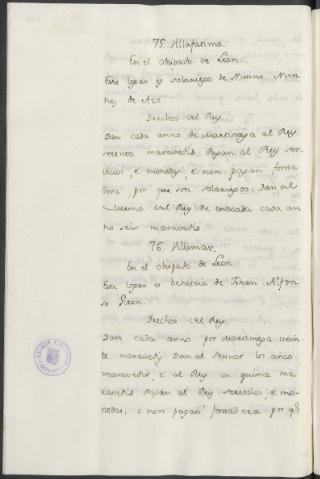 75. Villafarima.
En el obispado de Leon.
Este logar es solariego de Nunno Nun
nez de Aza.
Derechos del Rey.
Dan cada anno de Martiniega al Rey
sesenta maravedis. Pagan al Rey ser
vicios, e monedas, e non pagan fonsa
dera, por que son solariegos. Dan al
Merino del Rey de entrada cada an
no seis maravedis.
76. Villamar.
En el obispado de Leon.
Este logar es behetria de Johan Alfon
so Giron.
Derechos del Rey.
Dan cada anno por Martiniega vein
te maravedis. Dan al Sennor los cinco
maravedis, e al Rey los quince ma
ravedis. Pagan al Rey servicios, e mo
nedas, e non pagan fonsadera por q̃